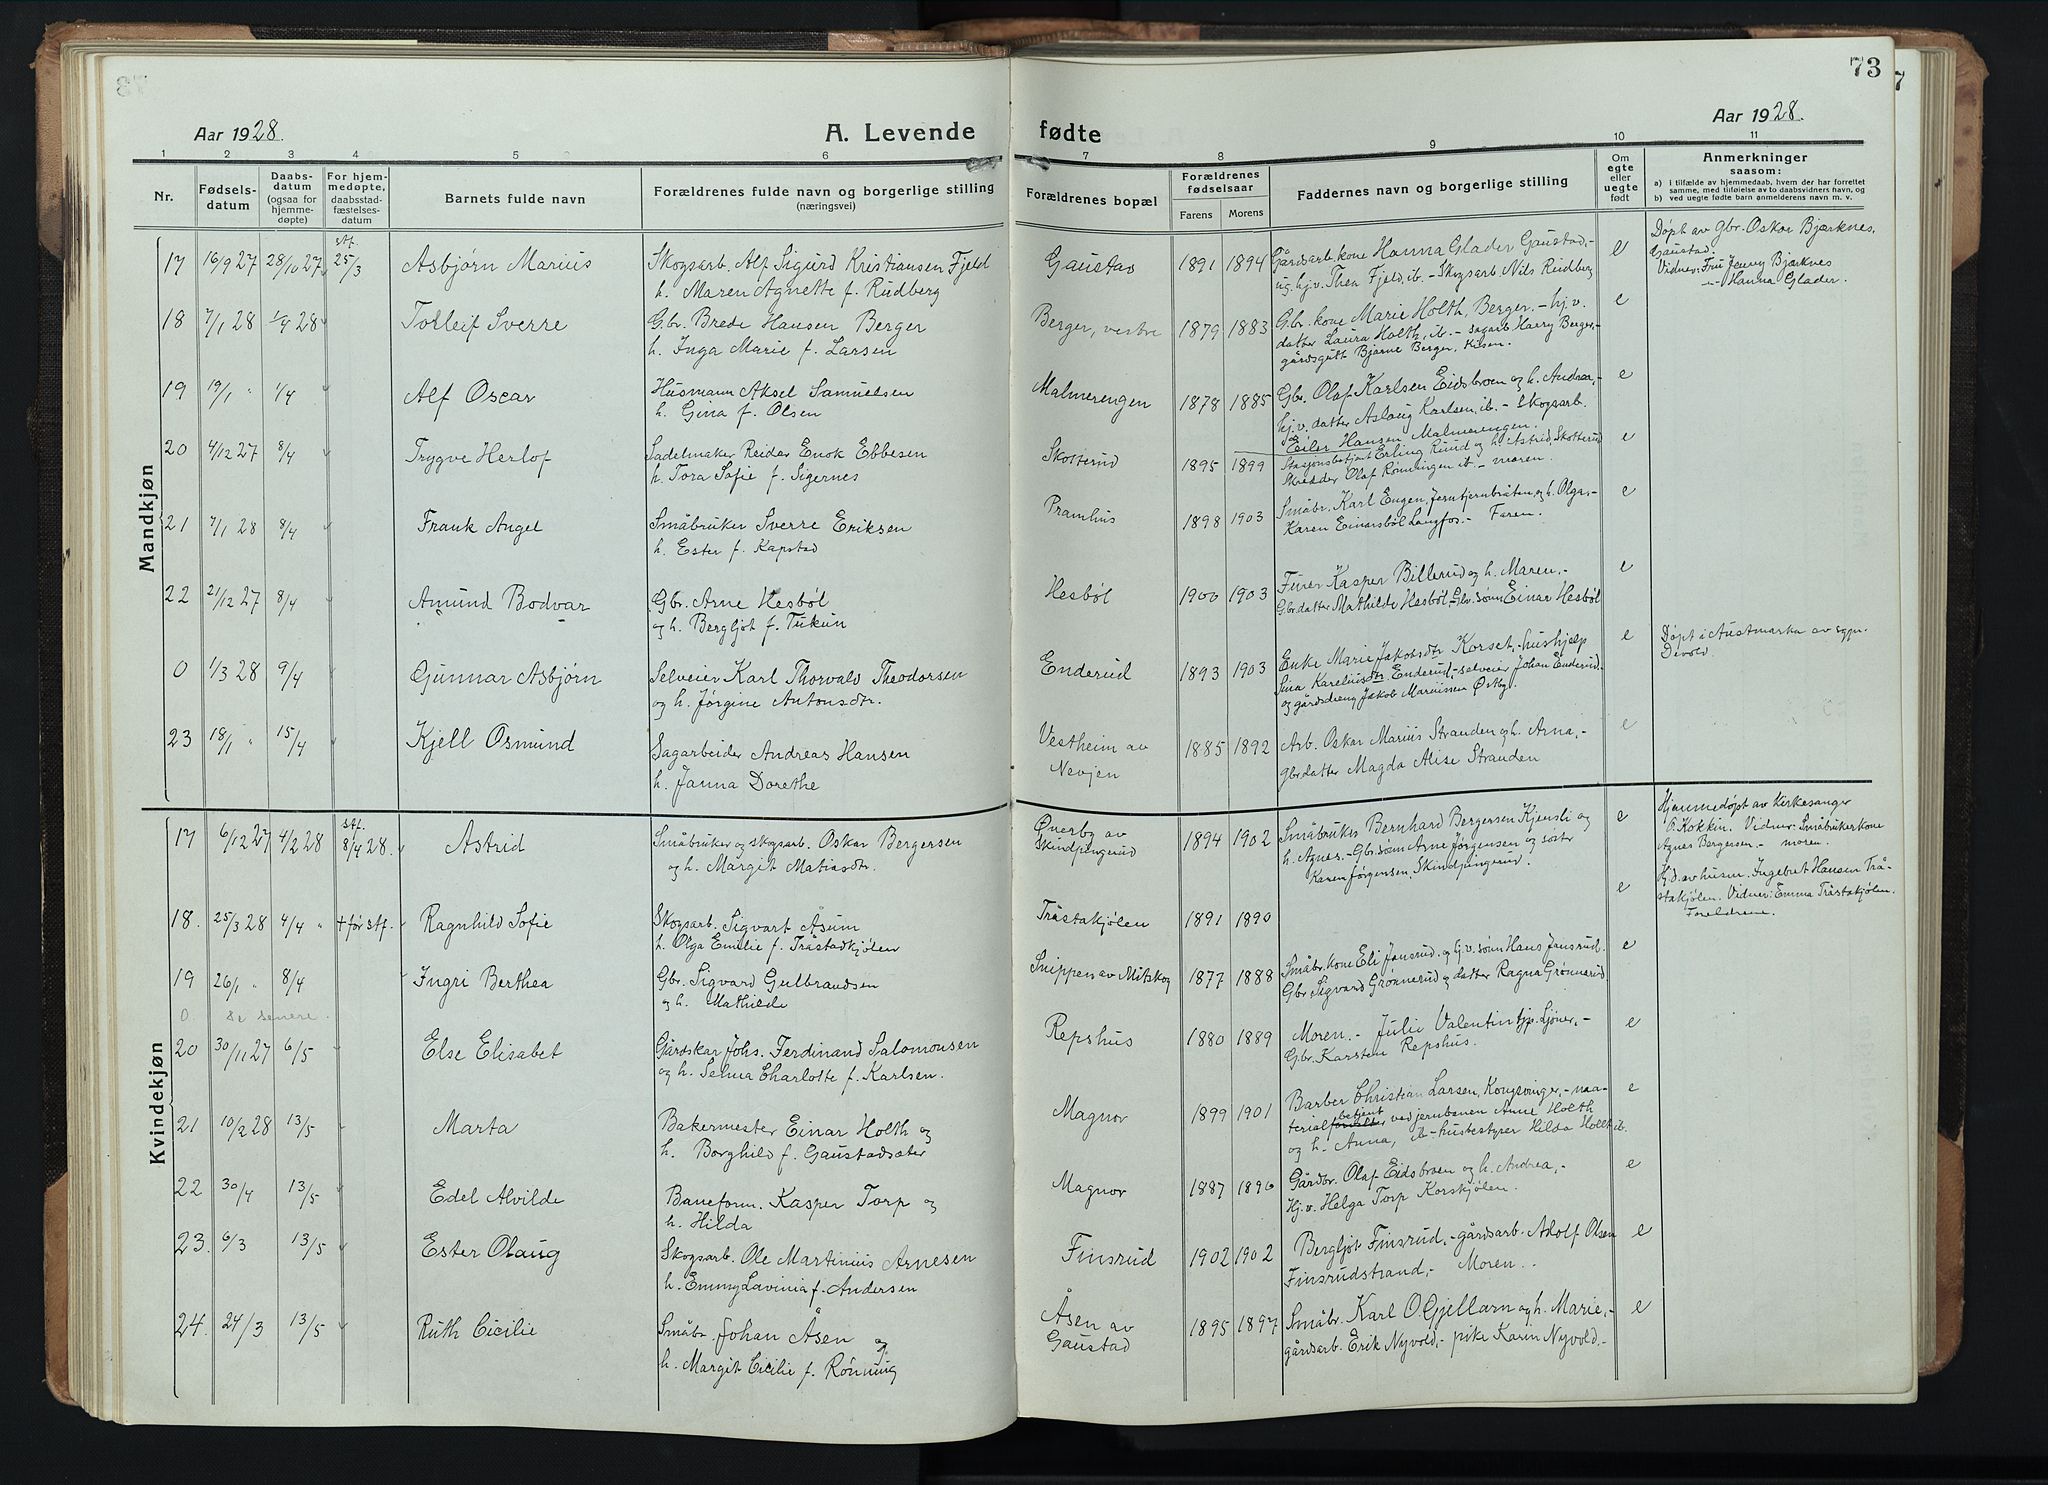 73
Aar 1928.
A. Levende fødte
Aar 1928.
1 2 3 4 5 6 7 8 9 10 11
Nr.
Fødselsdatum
Daabsdatum (ogsaa for hjemmedøpte)
For hjemmedøpte, daabsstadfæstelsesdatum
Barnets fulde navn
Forældrenes fulde navn og borgerlige stilling (næringsvei)
Forældrenes bopæl
Forældrenes fødselsaar
Farens Morens
Faddernes navn og borgerlige stilling
Om egte eller uegte født
Anmerkninger
saasom:
a) i tilfælde av hjemmedaab, hvem der har forrettet samme, med tilføielse av to daabsvidners navn, og
b) ved uegte fødte barn anmelderens navn m. v.
Mandkjøn
17 16/9 27 28/10 27 stf. 25/3 Asbjørn Marius Skogsarb. Alf Sigurd Kristiansen Fjeld Gaustad 1891 1894 Gårdsarb. kone Hanna Glader Gaustad,- e Døpt av gbr. Oskar Bjærknes,
h. Maren Agnette f. Rudberg ug. hj.v. Thea Fjeld, ib. - Skogsarb Nils Rudberg Gaustad.
Vidner: Fru Jenny Bjærknes
-"- Hanna Glader.
18 7/1 28 1/4 28 Tolleif Sverre Gbr. Brede Hansen Berger Berger, vestre 1879 1883 Gbr. kone Marie Holth, Berger. - hj.v. e
h. Inga Marie f. Larsen datter Laura Holth, ib. - sagarb Harry Berger,-
gårdsgutt Bjarne Berger, Kilsen.
19 19/1 " 1/4 Alf Oscar Husmann Aksel Samuelsen Malmerengen 1878 1885 Gbr. Olaf Karlsen Eidsbroen og h. Andrea,- e
h. Gina f. Olsen hj.v. datter Aslaug Karlsen, ib. - Skogsarb.
Eiler Hansen Malmerengen.
20 4/12 27 8/4 Trygve Herlof Sadelmaker Reidar Enok Ebbesen Skotterud 1895 1899 Stasjonsbetjent Erling Ruud og h. Astrid, Skotterud e
h. Tora Sofie f. Sigernes Skredder Olaf Rønningen ib. - moren.
21 7/1 28 8/4 Frank Angel Småbruker Sverre Eriksen Pramhus 1898 1903 Småbr. Karl Engen, Jerntjernbråten, og h. Olga,- e
h. Ester f. Kapstad Karen Einarsbøl Langfos. - Faren.
22 21/12 27 8/4 Amund Bodvar Gbr. Arne Hesbøl Hesbøl 1900 1903 Furer Kasper Billerud og h. Maren,- e
og h. Bergljot f. Tukun Gbr.datter Mathilde Hesbøl, Gbr. sønn Einar Hesbøl
0 1/3 28 9/4 Gunnar Asbjørn Selveier Karl Thorvald Theodorsen Enderud 1893 1903 Enke Marie Jakobsdtr Korset,- hushjelp e Døpt i Austmarka av sgpr.
og h. Jørgine Antonsdtr. Sina Kareliusdtr. Enderud,- selveier Johan Enderud. Devold.
og gårdsdreng Jakob Mariussen Østby.
23 18/1 " 15/4 Kjell Osmund Sagarbeider Andreas Hansen Vestheim av 1885 1892 Arb. Oskar Marius Stranden og h. Arna,- e
h. Janna Dorethe Nevjen gbrdatter Magda Alise Stranden
Kvindekjøn
17 6/12 27 4/2 28 stf. 8/4 28. Astrid Småbruker og skogsarb. Oskar Bergersen Øverby av 1894 1902 Småbruker Bernhard Bergersen Kjensli og e Hjemmedøpt av Kirkesanger
og h. Margit Matiasdtr. Skindpungrud h. Agnes. - Gbr. sønn Arne Jørgensen og søster O. Kokkin. Vidner: Småbrukerkone
Karen Jørgensen, Skindpungrud. Agnes Bergersen. - moren.
18. 25/3 28 4/4 " + før stf. Ragnhild Sofie Skogsarb. Sigvart Åsum Tråstakjølen 1891 1890 e Hj.d. av husm. Ingebret Hansen Trå-
h. Olga Emilie f. Tråstadkjølen stakjølen. Vidner: Emma Tråstakjølen.
Foreldrene.
19 26/1 " 8/4 Ingri Berthea Gbr. Sigvard Gulbrandsen Snippen av Mitskog 1877 1888 Småbr. kone Eli Jansrud. og g.v. sønn Hans Jansrud. e
og h. Mathilde Gbr Sigvard Grønnerud og datter Ragna Grønnerud
0. Se senere.
20 30/11 27 6/5 Else Elisabet Gårdskar Johs. Ferdinand Salomonsen Repshus 1880 1889 Moren. - Julie Valentin tjp. Ljøner,- e
og h. Selma Charlotte f. Karlsen. Gbr. Karsten Repshus.
21 10/2 28 13/5 Marta Bakermester Einar Holth og Magnor 1899 1901 Barber Christian Larsen, Kongsvinger,- ma- e
h. Borghild f. Gaustadsæter terialbetjent ved jernbanen Arne Holth
og h. Anna, ib - hustestyrer Hilda Holth ib.
22 30/4 13/5 Edel Alvilde Baneform. Kasper Torp og Magnor 1887 1896 Gårdbr. Olaf Eidsbroen og h. Andrea,- e
h. Hilda Hj.v. Helga Torp Korskjølen.
23. 6/3 13/5 Ester Olaug Skogsarb. Ole Martinius Arnesen Finsrud 1902 1902 Bergljot Finsrud,- gårdsarb. Adolf Olsen e
h. Emmy Lavinia f. Andersen Finsrudstrand,- Moren..
24. 24/3 13/5 Ruth Cicilie Småbr. Johan Åsen og Åsen av 1895 1897 Småbr. Karl O Gjellarn og h. Marie,- e
h. Margit Cicilie f. Rønning Gaustad gårdsarb. Erik Nyvold,- pike Karen Nyvold.-